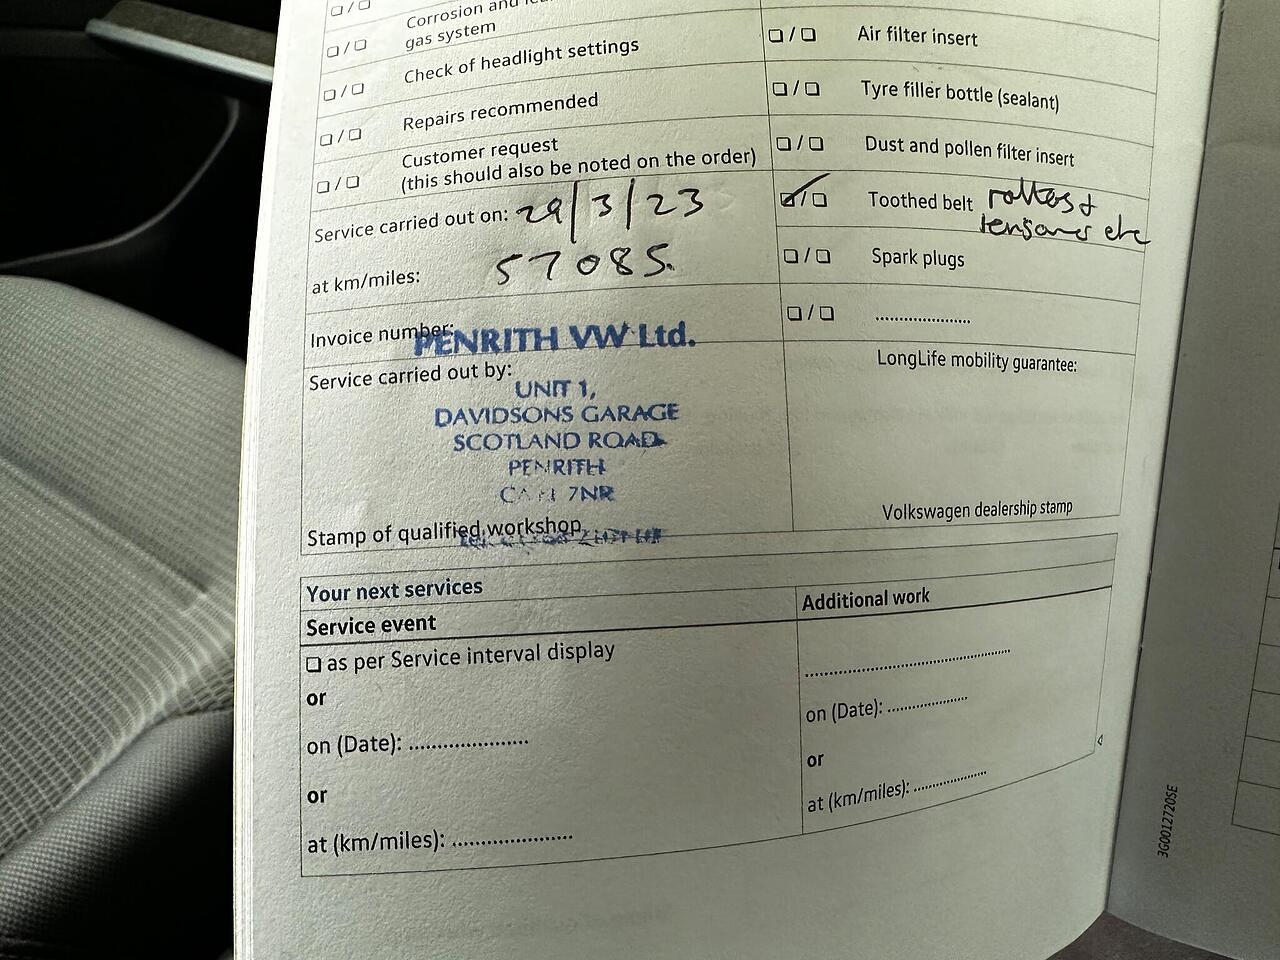 Corrosion and
gas system
Check of headlight settings
Repairs recommended
Customer request
(this should also be noted on the order)
Service carried out on: 29/3/23
at km/miles: 57085.
Invoice number:
PENRITH VW Ltd.
Service carried out by:
UNIT 1,
DAVIDSONS GARAGE
SCOTLAND ROAD
PENRITH
7NR
Stamp of qualified workshop
Air filter insert
Tyre filler bottle (sealant)
Dust and pollen filter insert
Toothed belt
tensioners etc
Spark plugs
....................
LongLife mobility guarantee:
Volkswagen dealership stamp
Your next services
Service event
❏ as per Service interval display
or
on (Date): .....................
or
at (km/miles): .....................
Additional work
....................................
on (Date): ..............
or
at (km/miles): .............
3G0012720SE